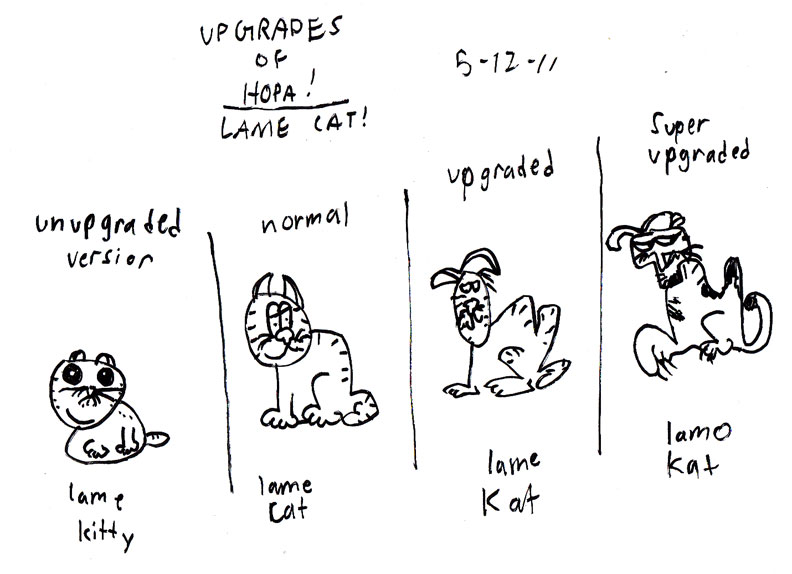 UPGRADES
OF
HOPA!
LAME CAT!
5-12-11
unupgraded
version
normal
upgraded
Super
upgraded
lame
kitty
lame
cat
lame
Kat
lamo
Kat